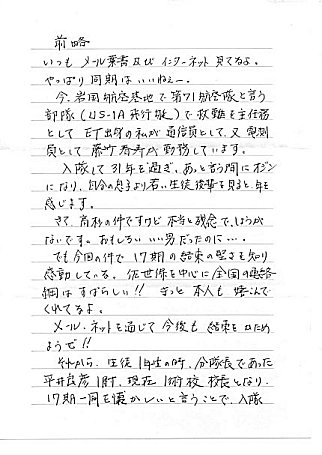 前略
いつもメール葉書及びインターネット見てるよ。
やっぱり同期はいいねぇー。
今、岩国航空基地で第71航空隊と言う
部隊(US-1A飛行艇)で救難を主任務
として ET出身の私が通信員として、又電測
員として 勤務しています。
入隊して31年を過ぎ、あっと言う間にオジン
になり、自分の息子より若い生徒後輩を見ると年を
感じます。
さて、高杉の件ですけど 本当に残念で、しょうが
ないです。おもしろい いい男だったのに…。
でも今回の件で 17期の結束の堅さを知り
感動している。佐世保を中心に全国の連絡
網はすばらしい!! きっと本人も 喜んで
くれてるよ。
メール・ネットを通じて今後も 結束をかため
ようぜ!!
それから、生徒1年生の時、分隊長であった
平井良彦1尉、現在1術校 校長となり、
17期一同を懐かしいと言うことで、入隊